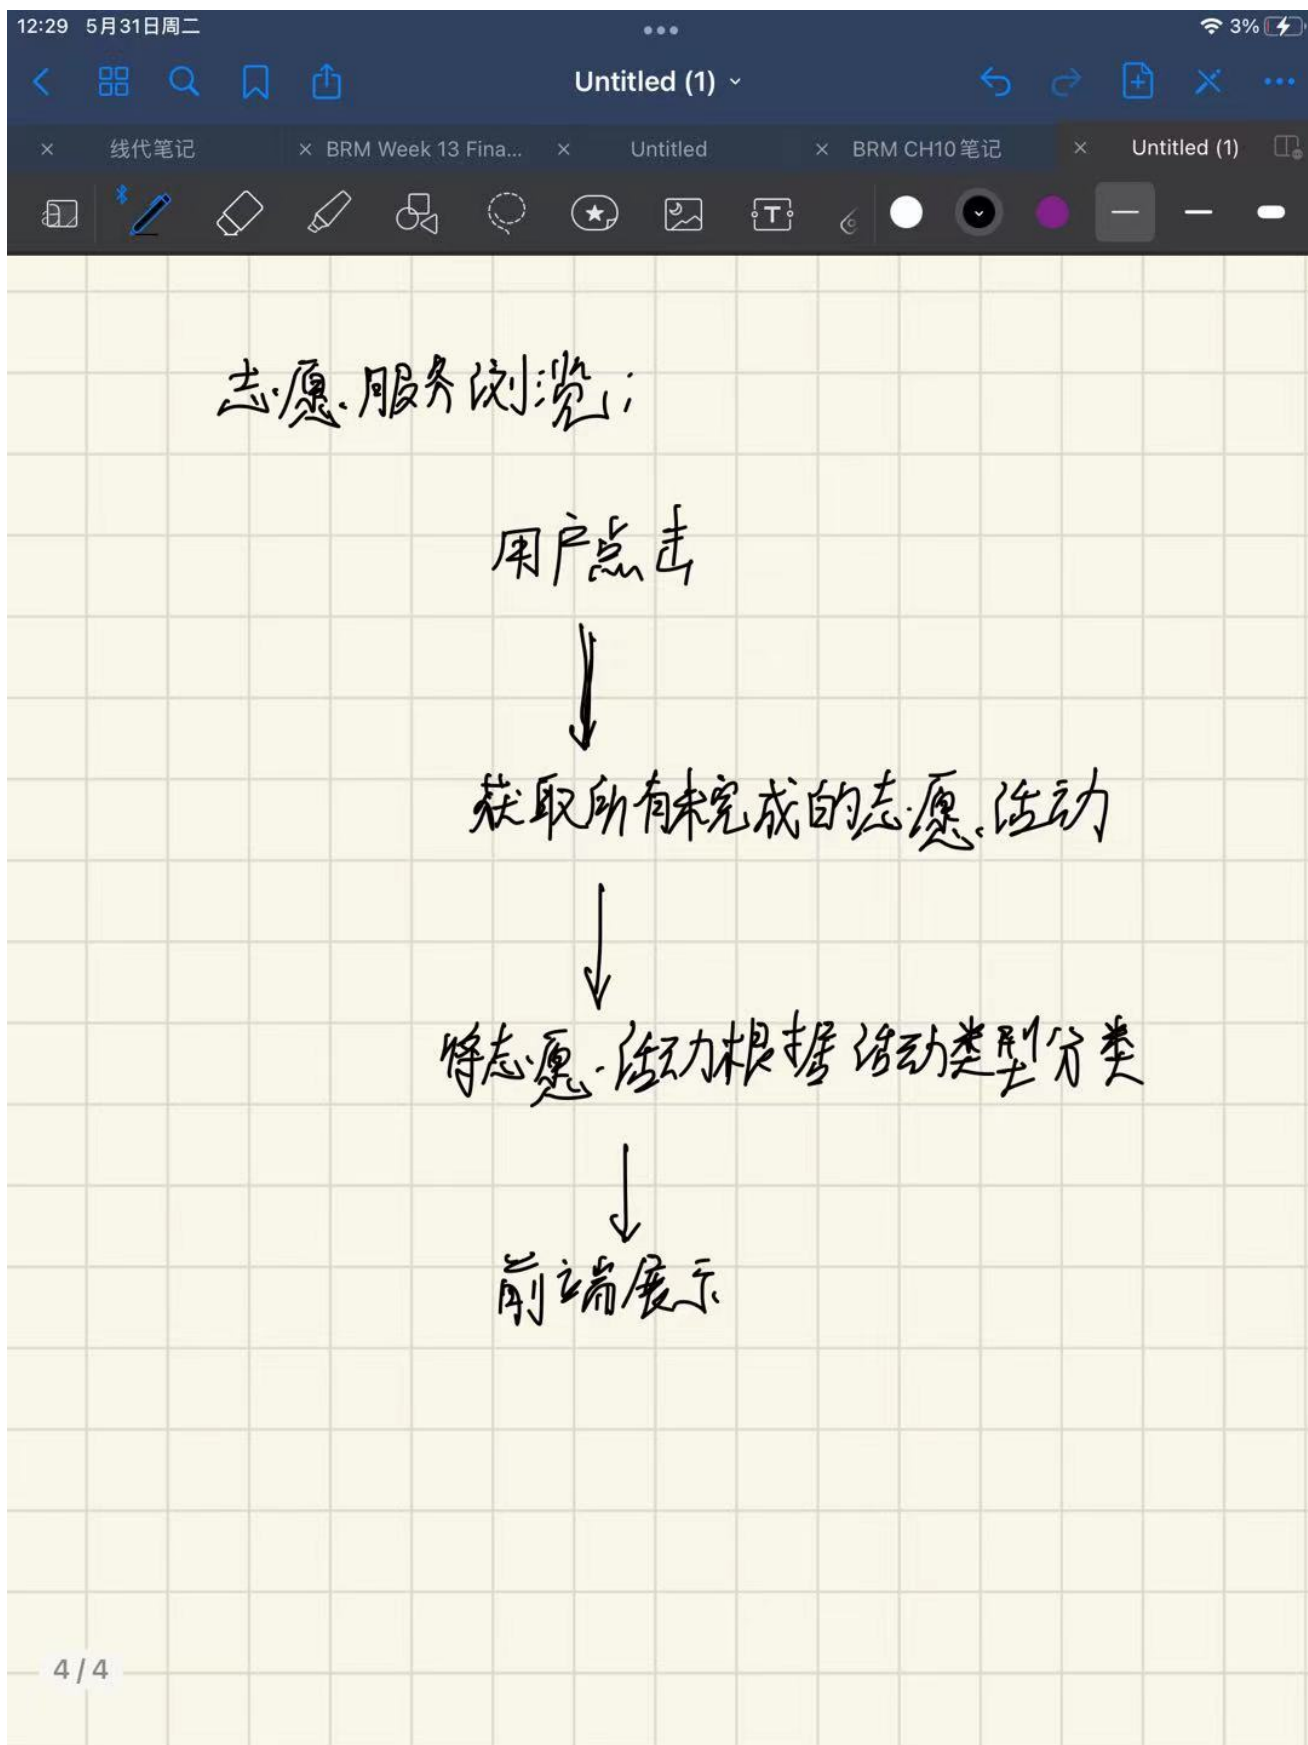 12:29 5月31日周二
3%
Untitled (1)
线代笔记
BRM Week 13 Fina...
Untitled
BRM CH10笔记
Untitled (1)
T
志愿服务浏览;
用户点击
获取所有未完成的志愿活动
将志愿活动根据活动类型分类
前端展示
4/4